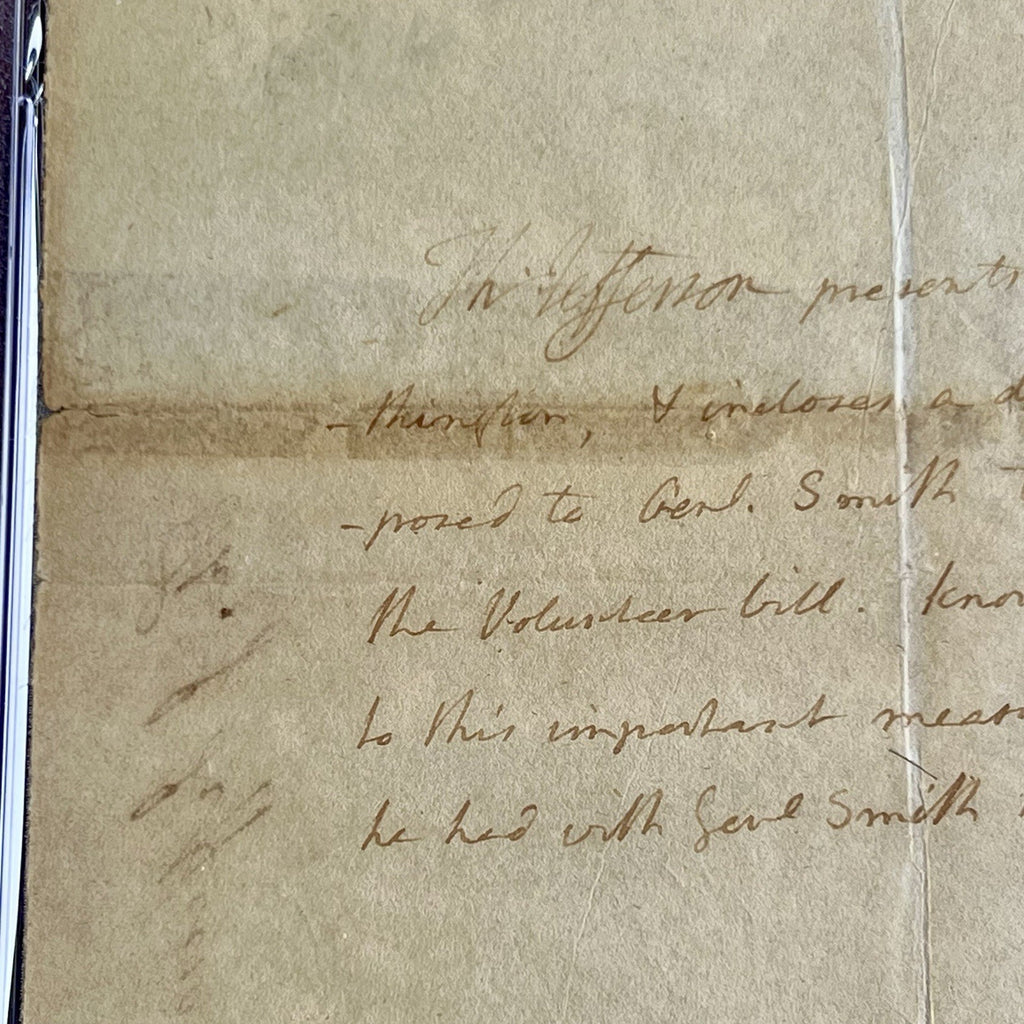 Th: Jefferson presents
-thington, & incloses a d
-posed to Genl. Smith t
the Volunteer bill. know
to this important meas
he had with Genl Smith